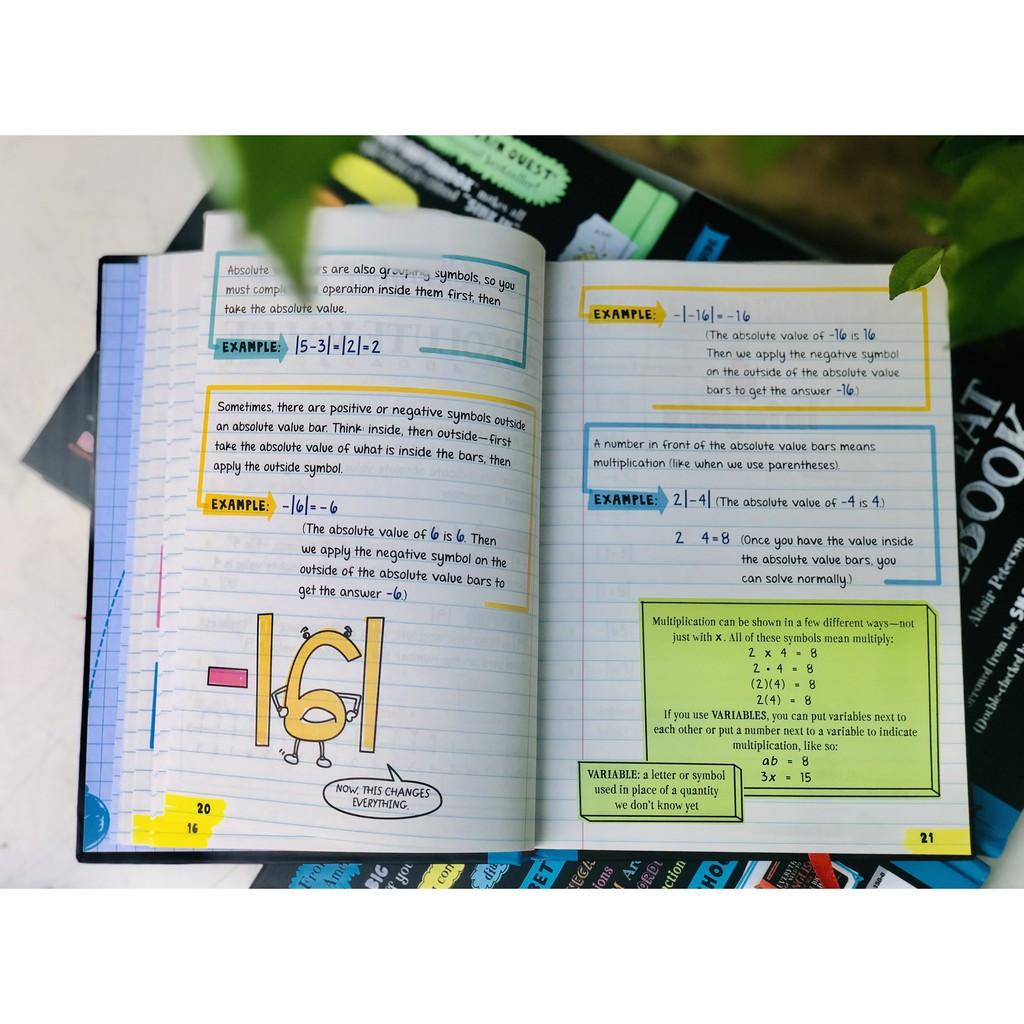 QUEST
Absolute are also grouping symbols, so you
must operation inside them first, then
take the absolute value.
EXAMPLE: |5-3|=|2|=2
Sometimes, there are positive or negative symbols outside
an absolute value bar. Think: inside, then outside—first
take the absolute value of what is inside the bars, then
apply the outside symbol.
EXAMPLE: -|6|=-6
(The absolute value of 6 is 6. Then
we apply the negative symbol on the
outside of the absolute value bars to
get the answer -6.)
-|6|
NOW, THIS CHANGES
EVERYTHING.
20
16
EXAMPLE: -|-16|=-16
(The absolute value of -16 is 16.
Then we apply the negative symbol
on the outside of the absolute value
bars to get the answer -16.)
A number in front of the absolute value bars means
multiplication (like when we use parentheses).
EXAMPLE: 2|-4| (The absolute value of -4 is 4.)
2 4=8 (Once you have the value inside
the absolute value bars, you
can solve normally.)
Multiplication can be shown in a few different ways—not
just with x. All of these symbols mean multiply:
2 x 4 = 8
2 • 4 = 8
(2)(4) = 8
2(4) = 8
If you use VARIABLES, you can put variables next to
each other or put a number next to a variable to indicate
multiplication, like so:
ab = 8
3x = 15
VARIABLE: a letter or symbol
used in place of a quantity
we don't know yet
21
Altair Peterson
BIG